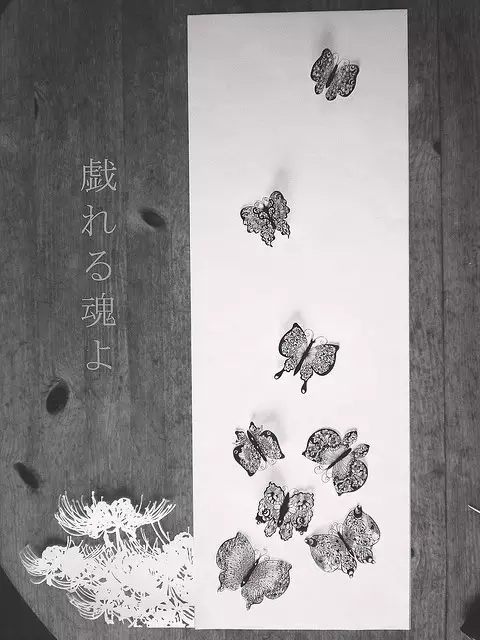 戯れる魂よ